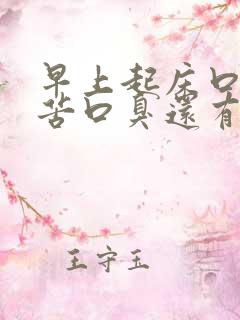 早上起床口
苦口臭還有
王守玉